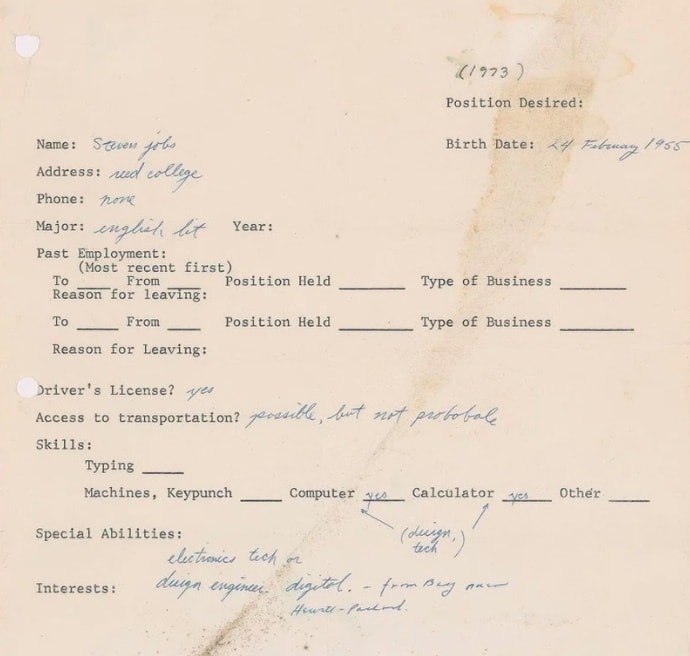 (1973)
Position Desired:
Name: Steven jobs Birth Date: 24 February 1955
Address: reed college
Phone: none
Major: english lit Year:
Past Employment:
(Most recent first)
To ____ From ____ Position Held ________ Type of Business ________
Reason for leaving:
To _____ From ____ Position Held _________ Type of Business _________
Reason for Leaving:
Driver's License? yes
Access to transportation? possible, but not probobale
Skills:
Typing _____
Machines, Keypunch _____ Computer yes Calculator yes Other _____
(design,
tech)
Special Abilities:
electronics tech or
Interests: design engineer. digital. - from Bay near
Hewett-Packard.